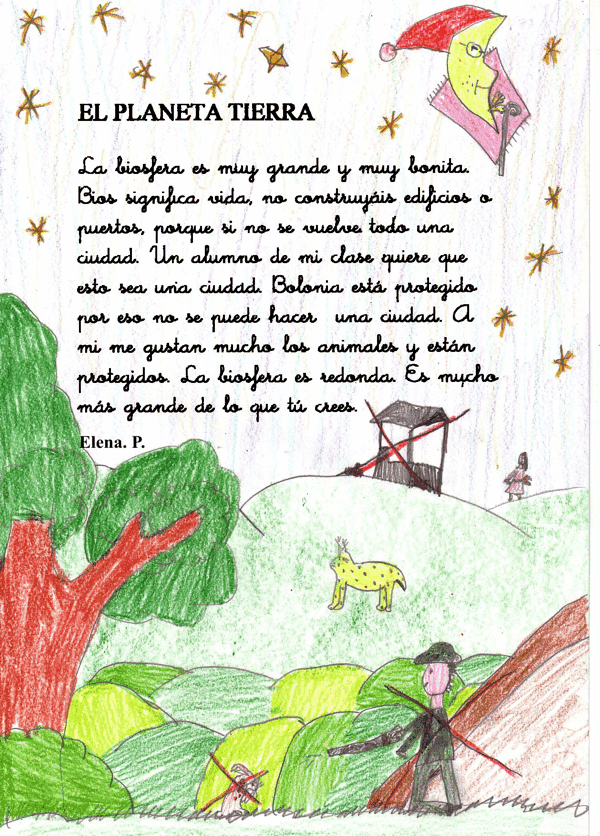 EL PLANETA TIERRA
La biosfera es muy grande y muy bonita.
Bios significa vida, no construyáis edificios o
puertos, porque si no se vuelve todo una
ciudad. Un alumno de mi clase quiere que
esto sea una ciudad. Bolonia está protegido
por eso no se puede hacer una ciudad. A
mi me gustan mucho los animales y están
protegidos. La biosfera es redonda. Es mucho
más grande de lo que tú crees.
Elena. P.